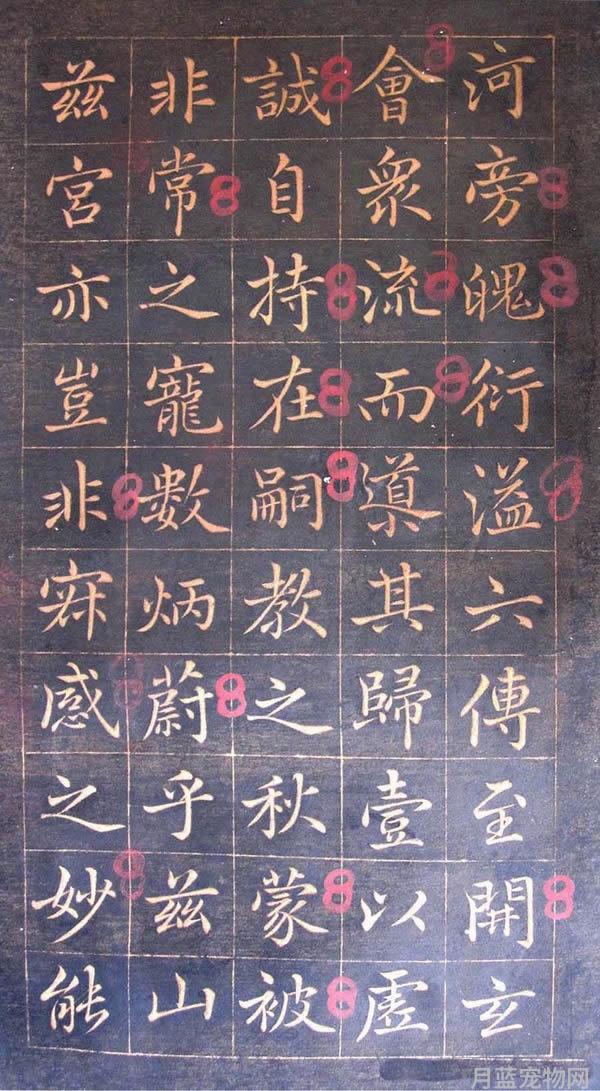 河旁魄衍溢六傳至開玄
會衆流而導其歸壹以虛
誠自持在嗣教之秋蒙被
非常之寵數炳蔚乎兹山
兹宮亦豈非寂感之妙能
月蓝宠物网